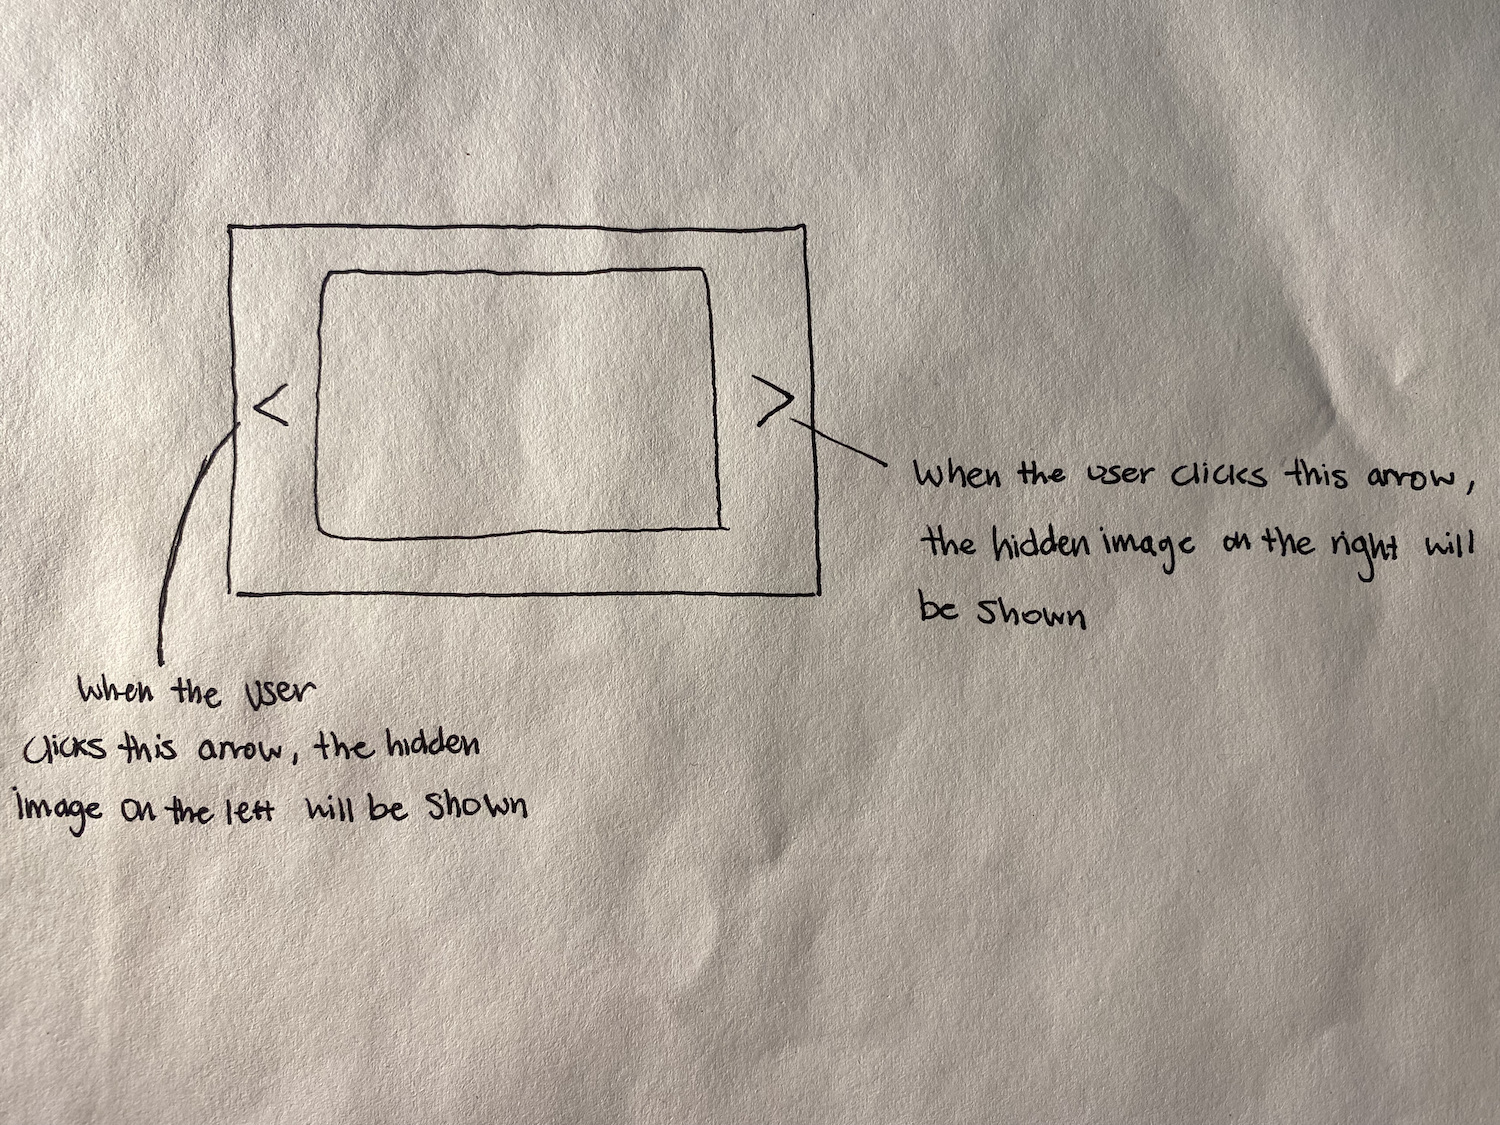 <
>
When the user clicks this arrow,
the hidden image on the right will
be shown
When the user
clicks this arrow, the hidden
image on the left will be shown